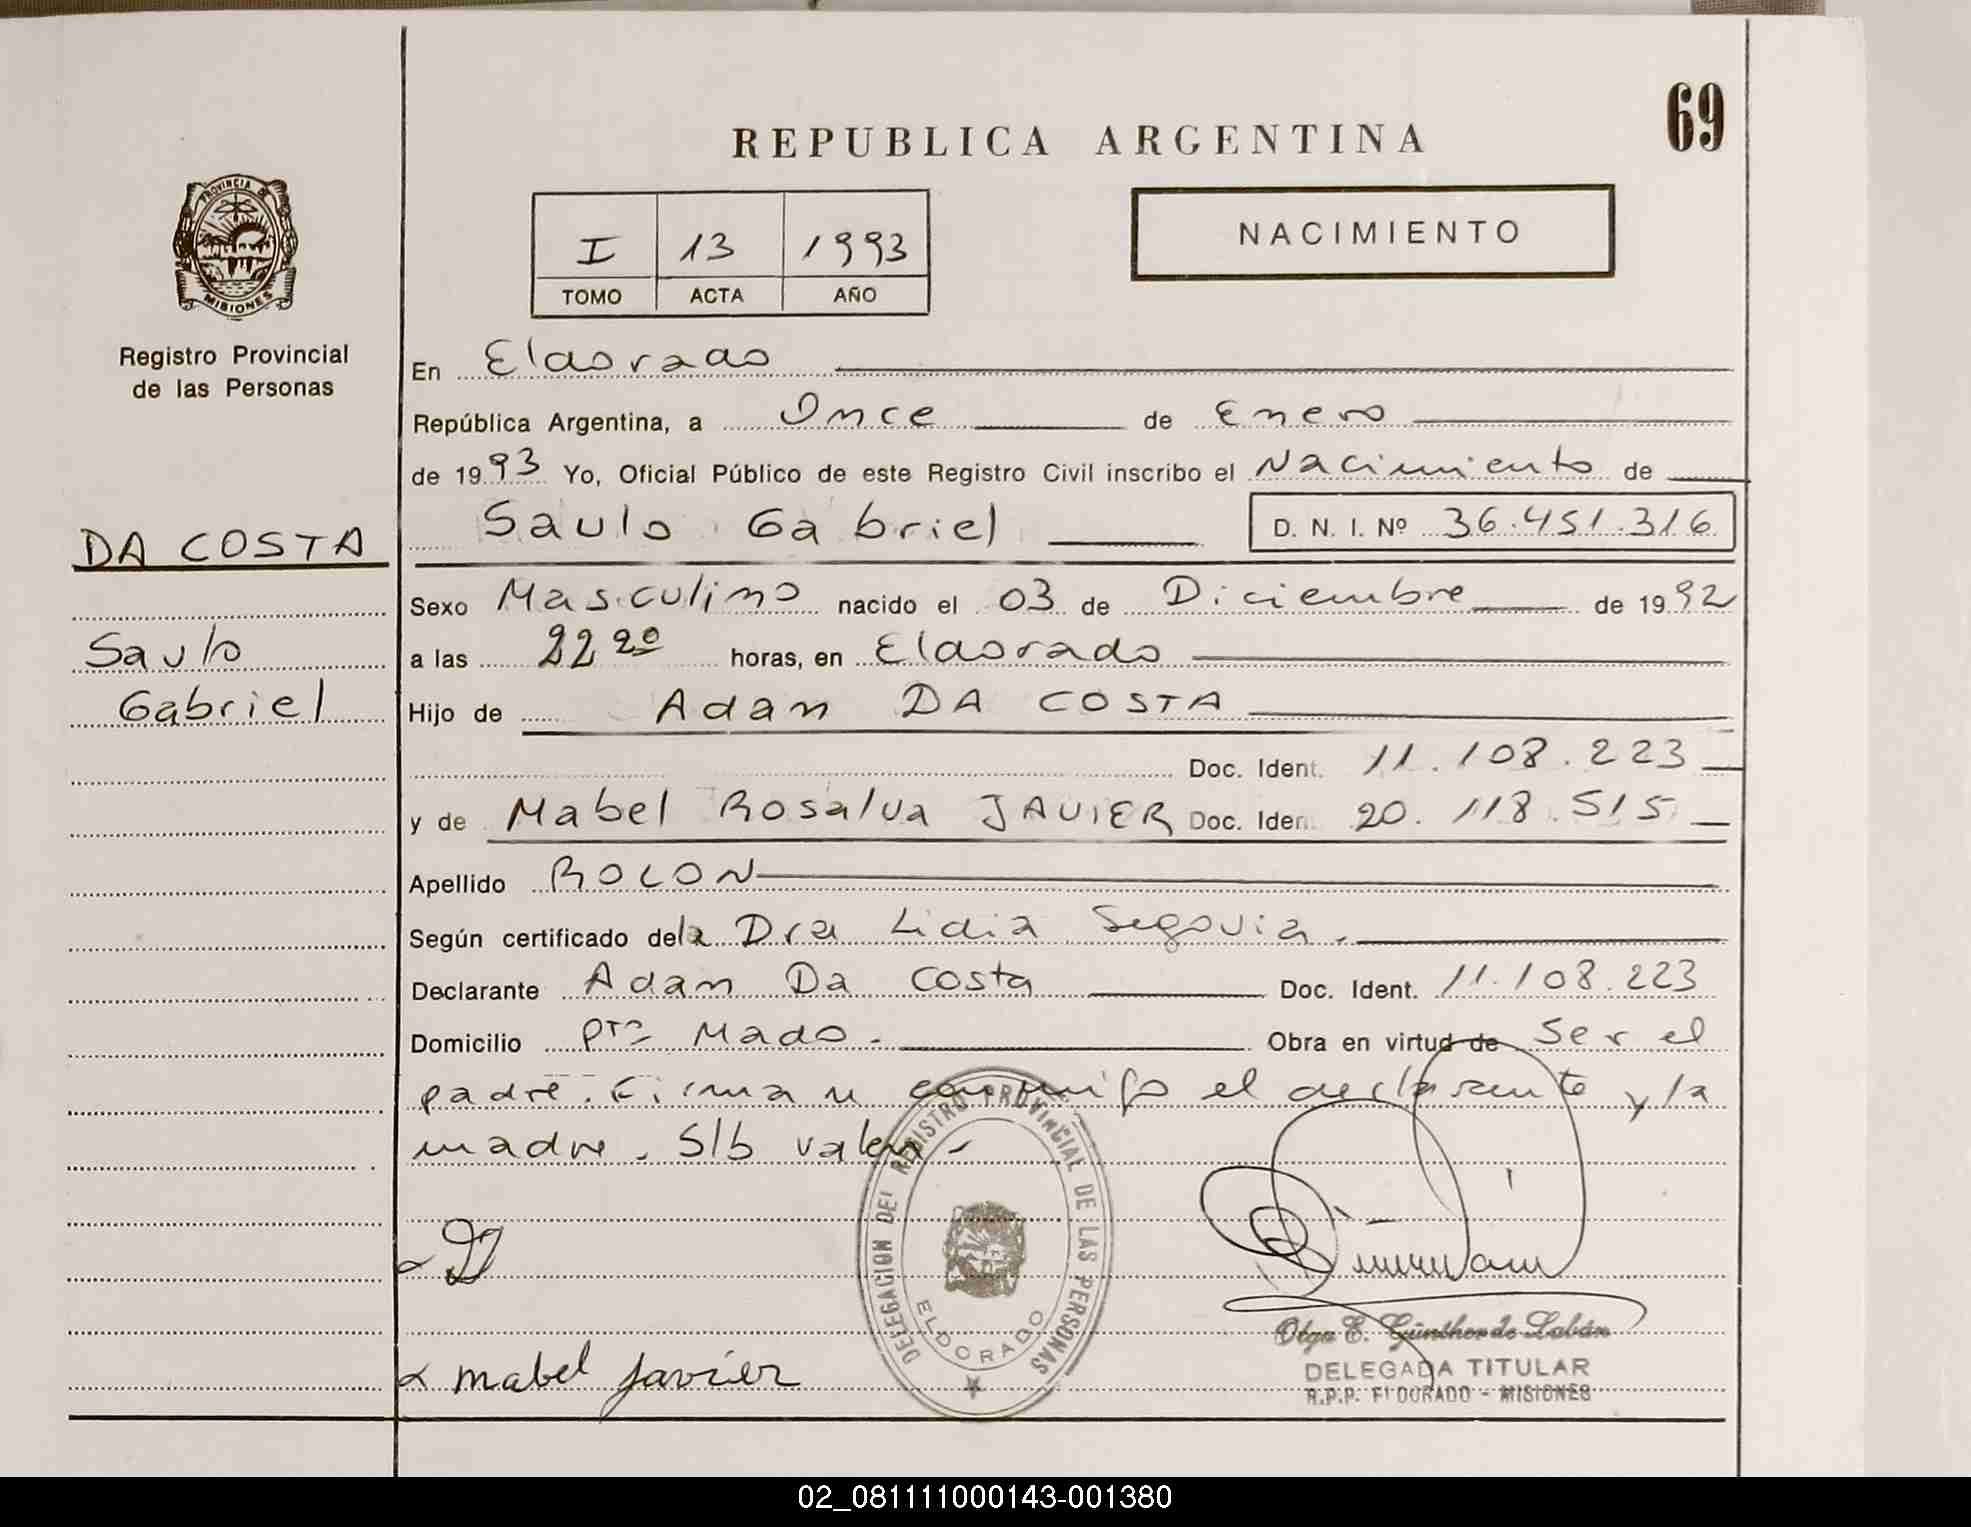 69
REPUBLICA ARGENTINA
PROVINCIA DE
MISIONES
Registro Provincial
de las Personas
I 13 1993
TOMO ACTA AÑO
NACIMIENTO
En Eldorado
República Argentina, a Once de Enero
de 1993 Yo, Oficial Público de este Registro Civil inscribo el Nacimiento de
DA COSTA
Saulo Gabriel D. N. I. Nº 36.451.316
Sexo Masculino nacido el 03 de Diciembre de 1992
Saulo
a las 22 20 horas, en Eldorado
Gabriel
Hijo de Adam DA COSTA
Doc. Ident. 11.108.223
y de Mabel Rosalva JAVIER Doc. Iden. 20.118.515
Apellido ROLON
Según certificado de la Dra Lidia Segovia.
Declarante Adam Da Costa Doc. Ident. 11.108.223
Domicilio Pto Mado. Obra en virtud de Ser el
padre. Firma conmigo el declarante y la
madre. S/b vale.-
DELEGACION DEL REGISTRO PROVINCIAL DE LAS PERSONAS
ELDORADO
mabel Javier
Olga E. Günther de Labán
DELEGADA TITULAR
R.P.P. ELDORADO - MISIONES
02_081111000143-001380